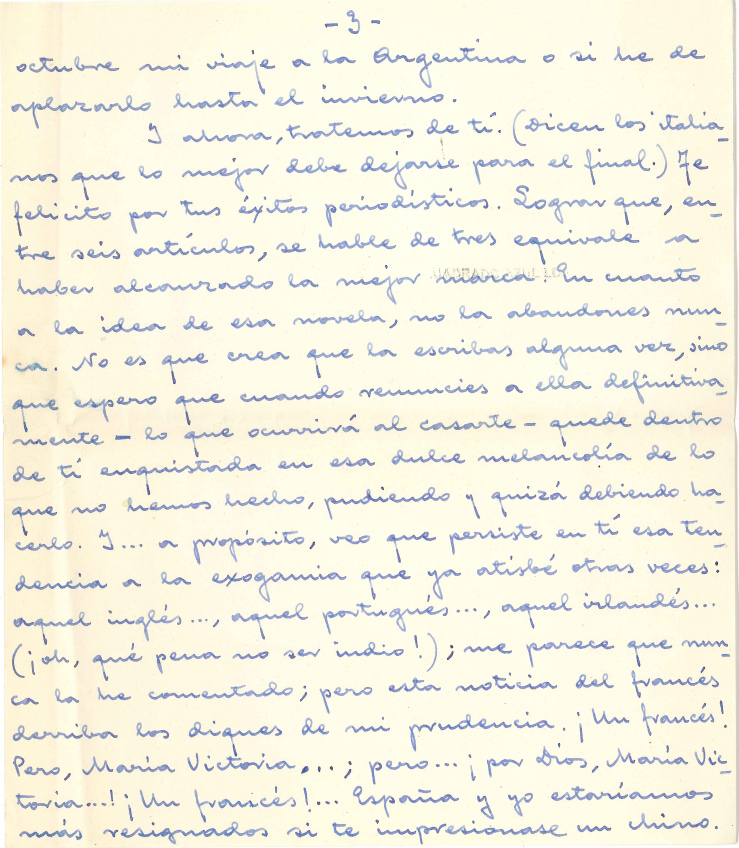 - 3 -
octubre mi viaje a la Argentina o si he de
aplazarlo hasta el invierno.
Y ahora, tratemos de tí. (Dicen los italia-
nos que lo mejor debe dejarse para el final.) Te
felicito por tus éxitos periodísticos. Lograr que, en-
tre seis artículos, se hable de tres equivale a
haber alcanzado la mejor marca. En cuanto
a la idea de esa novela, no la abandones nun-
ca. No es que crea que la escribas alguna vez, sino
que espero que cuando renuncies a ella definitiva-
mente - lo que ocurrirá al casarte - quede dentro
de tí enquistada en esa dulce melancolía de lo
que no hemos hecho, pudiendo y quizá debiendo ha-
cerlo. Y... a propósito, veo que persiste en tí esa ten-
dencia a la exogamia que ya atisbé otras veces:
aquel inglés..., aquel portugués..., aquel irlandés...
(¡oh, qué pena no ser indio!); me parece que nun-
ca la he comentado; pero esta noticia del francés
derriba los diques de mi prudencia. ¡Un francés!
Pero, María Victoria...; pero...¡por Dios, María Vic-
toria...! ¡Un francés!... España y yo estaríamos
más resignados si te impresionase un chino.